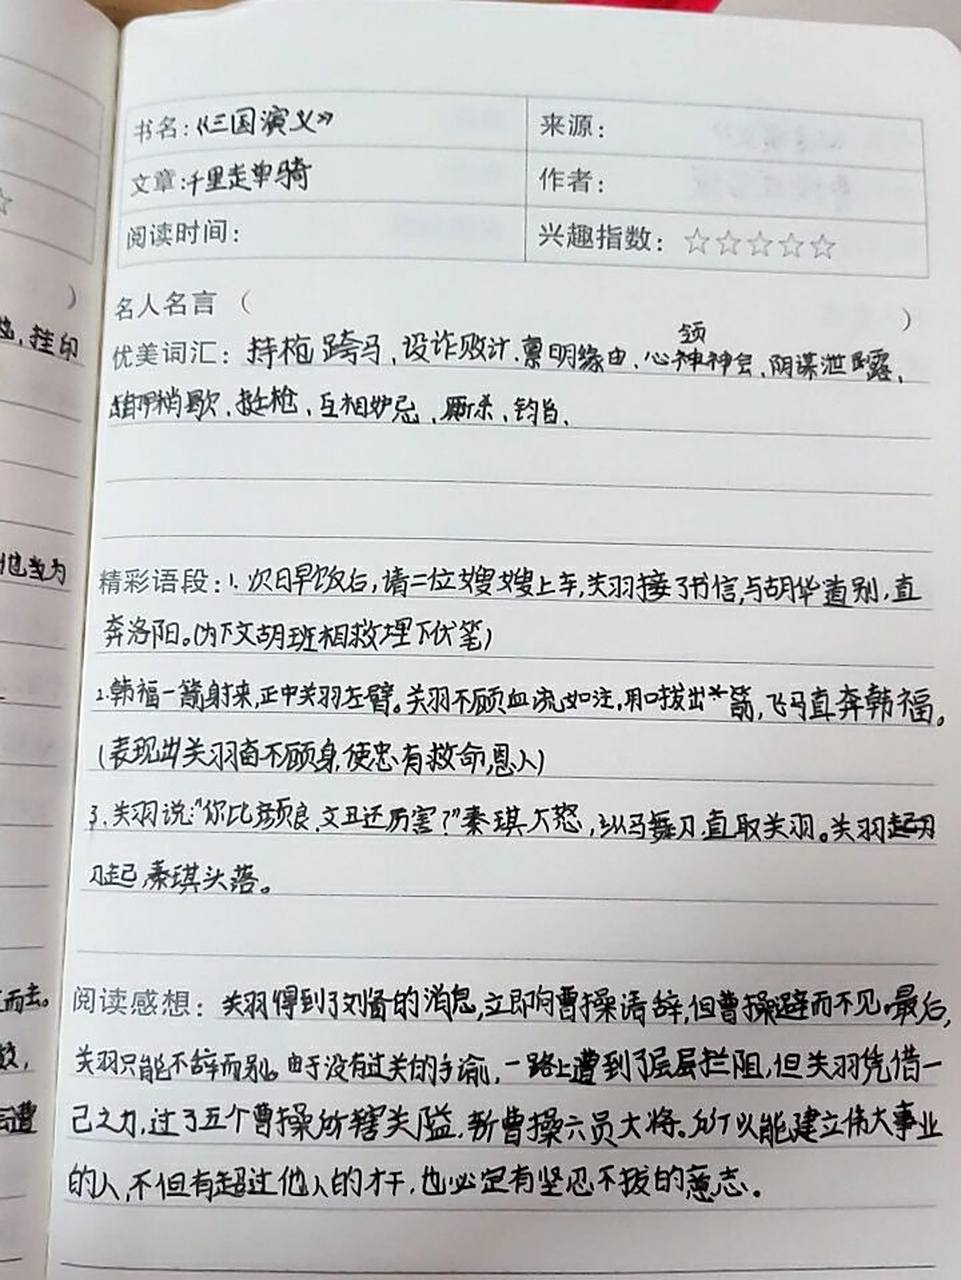 书名：《三国演义》 来源：
文章：千里走单骑 作者：
阅读时间： 兴趣指数：☆☆☆☆☆
名人名言（ ）
领
优美词汇：持枪跨马、设诈败计、禀明缘由、心神神会、阴谋泄露、
稍歇、挺枪、互相妒忌、厮杀、钧旨、
精彩语段：1.次日早饭后，请二位嫂嫂上车，关羽接了书信，与胡华道别，直
奔洛阳。（为下文胡班相救埋下伏笔）
2.韩福一箭射来，正中关羽左臂。关羽不顾血流如注，用口拔出箭，飞马直奔韩福。
（表现出关羽奋不顾身，使忠有救命恩人）
3.关羽说："你比颜良、文丑还厉害？"秦琪大怒，纵马舞刀，直取关羽。关羽起刃
刀起，秦琪头落。
阅读感想：关羽得到了刘备的消息，立即向曹操请辞，但曹操避而不见。最后，
关羽只能不辞而别。由于没有过关的手谕，一路上遭到了层层拦阻，但关羽凭借一
己之力，过了五个曹操所辖关隘，斩曹操六员大将。所以能建立伟大事业
的人，不但有超过他人的才干，也必定有坚忍不拔的意志。
）
挂印
他当为
而去。
遭